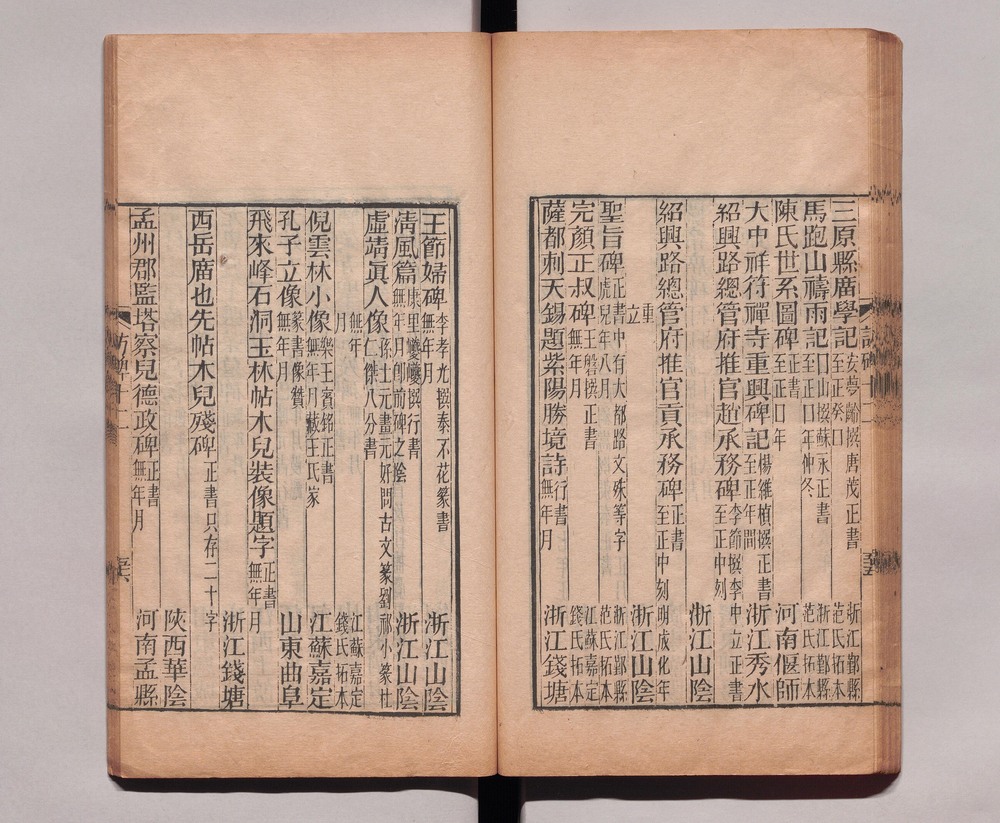 三原縣廣學記 安夢齡撰唐茂正書 至正癸囗 浙江鄞縣 范氏拓本
馬跑山禱雨記 囗山撰蘇永正書 至正囗年仲冬 浙江鄞縣 范氏拓本
陳氏世系圖碑 正書 至正囗年 河南偃師
大中祥符禪寺重興碑記 楊維楨撰正書 至正年間 浙江秀水
紹興路總管府推官趙承務碑 李節撰李中立正書 至正中刻
浙江山陰
紹興路總管府推官貢承務碑 正書 至正中刻 明成化年
重立 浙江山陰
聖旨碑 正書中有大都路文殊等字 虎兒年八月 浙江鄞縣 范氏拓本
完顏正叔碑 王磐撰正書 無年月 江蘇嘉定 錢氏拓本
薩都刺天錫題紫陽勝境詩 行書 無年月 浙江錢塘
王節婦碑 李孝光撰泰不花篆書 無年月 浙江山陰
清風篇 康里巙巙撰行書 無年月刻前碑之陰 浙江山陰
虛靖真人像 孫士元畫元好問古文篆劉祁小篆杜仁傑八分書
無年月 江蘇嘉定 錢氏拓本
倪雲林小像 樂王賓銘正書 無年月藏王氏家 江蘇嘉定
孔子立像 篆書像贊 無年月 山東曲阜
飛來峰石洞玉林帖木兒裝像題字 正書 無年月
浙江錢塘
西岳廣也先帖木兒殘碑 正書只存二十字
陝西華陰
孟州郡監塔察兒德政碑 正書 無年月 河南孟縣